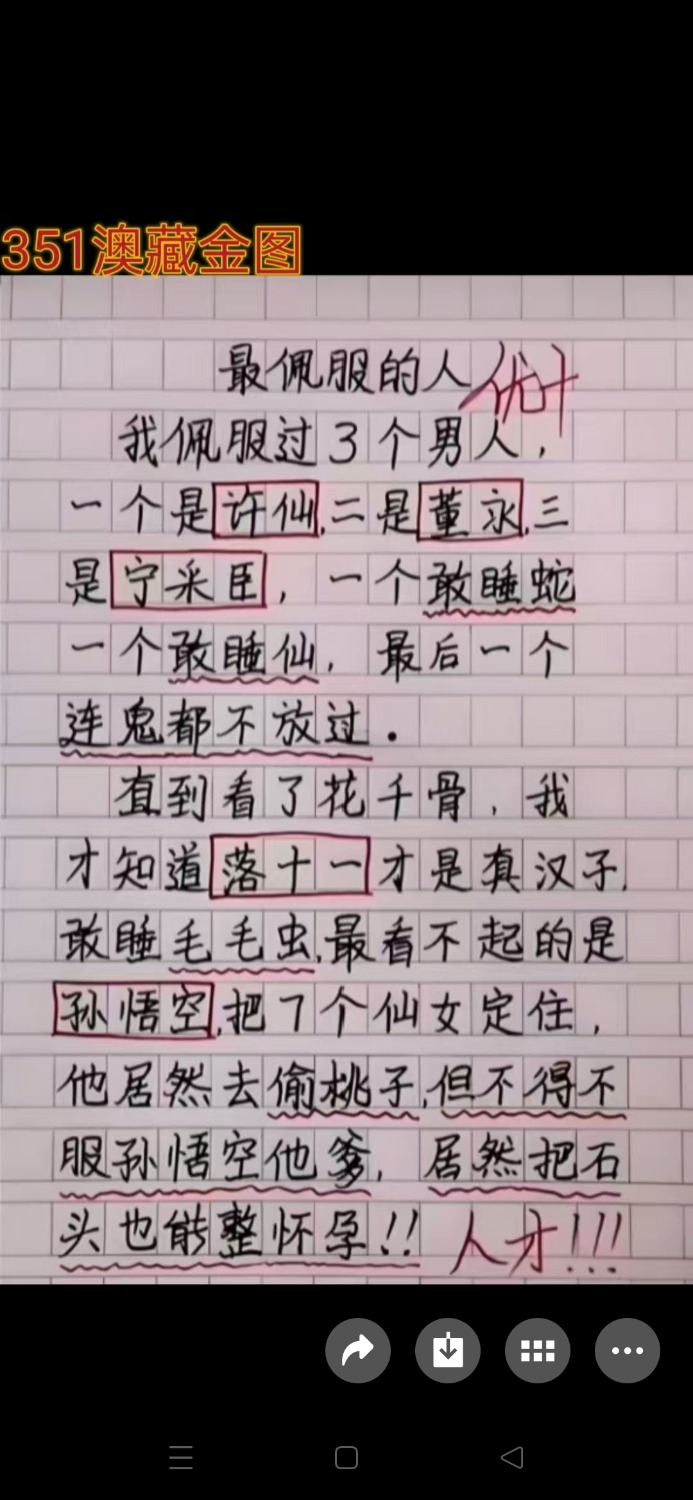 351澳藏金图
最佩服的人 优+
我佩服过3个男人，
一个是许仙，二是董永，三
是宁采臣，一个敢睡蛇
一个敢睡仙，最后一个
连鬼都不放过．
直到看了花千骨，我
才知道落十一才是真汉子，
敢睡毛毛虫，最看不起的是
孙悟空，把7个仙女定住，
他居然去偷桃子，但不得不
服孙悟空他爹，居然把石
头也能整怀孕!! 人才!!!